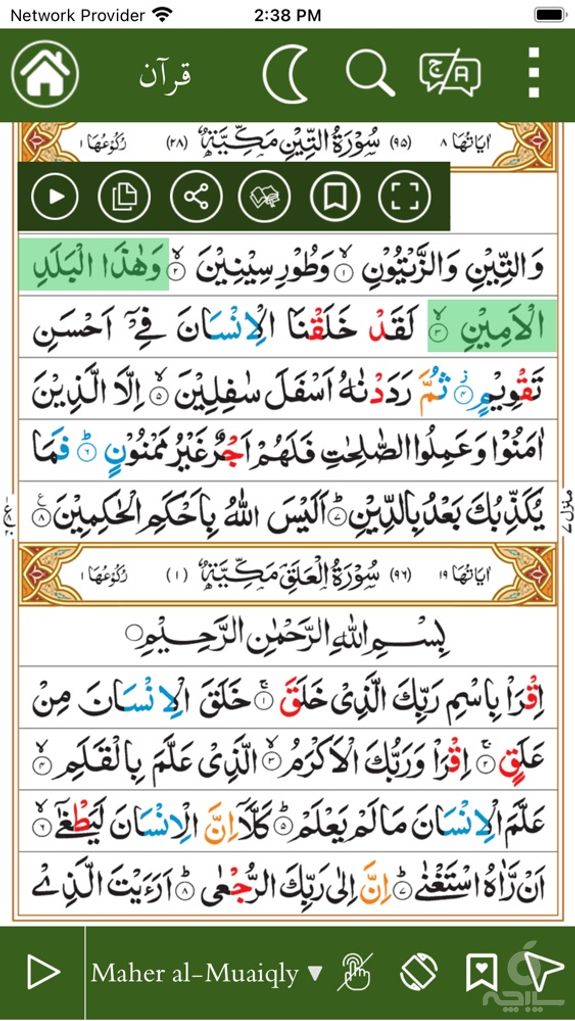 Network Provider 2:38 PM
قرآن
ج A
اٰیَاتُهَا ٨ (٩٥) سُوْرَةُ التِّیْنِ مَكِّیَّةٌ (٢٨) رُكُوْعُهَا ١
وَالتِّیْنِ وَالزَّیْتُوْنِ ۙ﴿١﴾ وَطُوْرِ سِیْنِیْنَ ۙ﴿٢﴾ وَهٰذَا الْبَلَدِ
الْاَمِیْنِ ۙ﴿٣﴾ لَقَدْ خَلَقْنَا الْاِنْسَانَ فِیْۤ اَحْسَنِ
تَقْوِیْمٍ ۫﴿٤﴾ ثُمَّ رَدَدْنٰهُ اَسْفَلَ سٰفِلِیْنَ ۙ﴿٥﴾ اِلَّا الَّذِیْنَ
اٰمَنُوْا وَعَمِلُوا الصّٰلِحٰتِ فَلَهُمْ اَجْرٌ غَیْرُ مَمْنُوْنٍ ؕ﴿٦﴾ فَمَا
یُكَذِّبُكَ بَعْدُ بِالدِّیْنِ ؕ﴿٧﴾ اَلَیْسَ اللّٰهُ بِاَحْكَمِ الْحٰكِمِیْنَ ﴿٨﴾
منزل ٧
اٰیَاتُهَا ١٩ (٩٦) سُوْرَةُ الْعَلَقِ مَكِّیَّةٌ (١) رُكُوْعُهَا ١
بِسْمِ اللّٰهِ الرَّحْمٰنِ الرَّحِیْمِ
اِقْرَاْ بِاسْمِ رَبِّكَ الَّذِیْ خَلَقَ ۚ﴿١﴾ خَلَقَ الْاِنْسَانَ مِنْ
عَلَقٍ ۚ﴿٢﴾ اِقْرَاْ وَرَبُّكَ الْاَكْرَمُ ۙ﴿٣﴾ الَّذِیْ عَلَّمَ بِالْقَلَمِ ۙ﴿٤﴾
عَلَّمَ الْاِنْسَانَ مَا لَمْ یَعْلَمْ ؕ﴿٥﴾ كَلَّاۤ اِنَّ الْاِنْسَانَ لَیَطْغٰۤی ۙ﴿٦﴾
اَنْ رَّاٰهُ اسْتَغْنٰی ؕ﴿٧﴾ اِنَّ اِلٰی رَبِّكَ الرُّجْعٰی ؕ﴿٨﴾ اَرَءَیْتَ الَّذِیْ
Maher al-Muaiqly